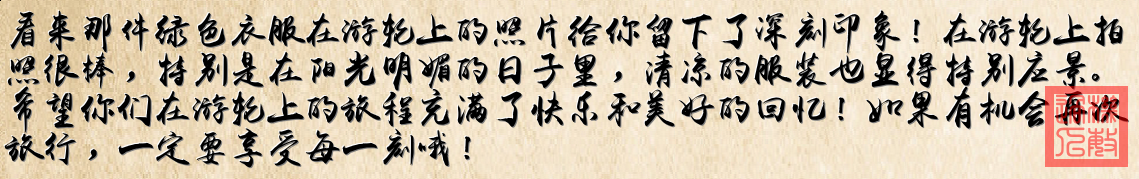 看来那件绿色衣服在游轮上的照片给你留下了深刻印象！在游轮上拍
照很棒，特别是在阳光明媚的日子里，清凉的服装也显得特别应景。
希望你们在游轮上的旅程充满了快乐和美好的回忆！如果有机会再次
旅行，一定要享受每一刻哦！